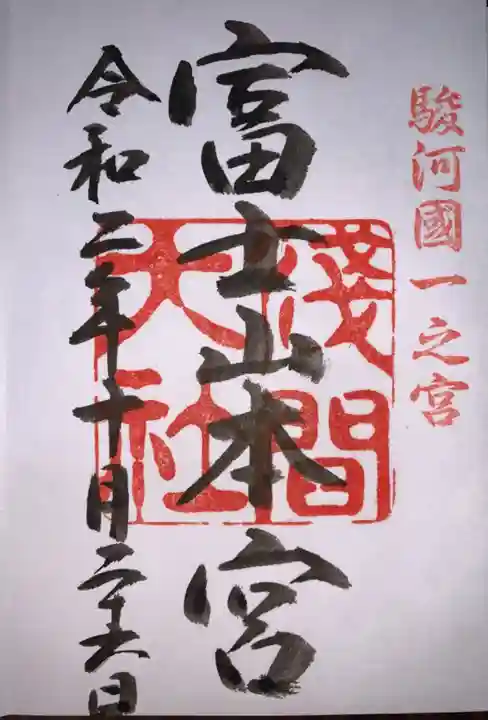 駿河國一之宮
富士山本宮
淺間大社
令和二年十月二十六日